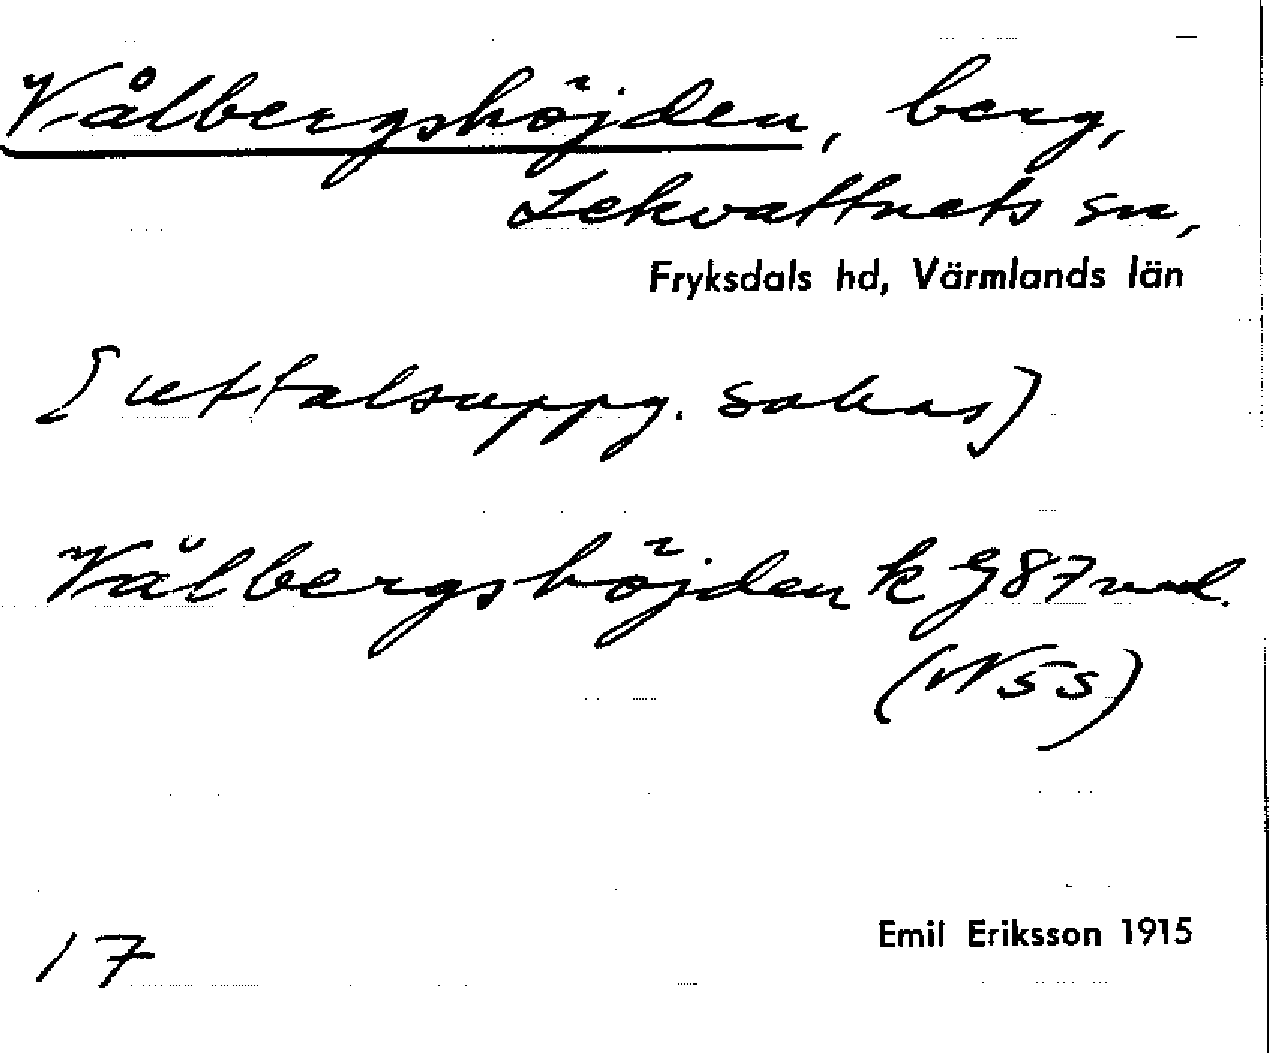 Vålbergshöjden, berg,
Lekvattnets sn,
Fryksdals hd, Värmlands län
[uttalsuppg. saknas]
Vålbergshöjden k G87
(NSS)
17
Emil Eriksson 1915